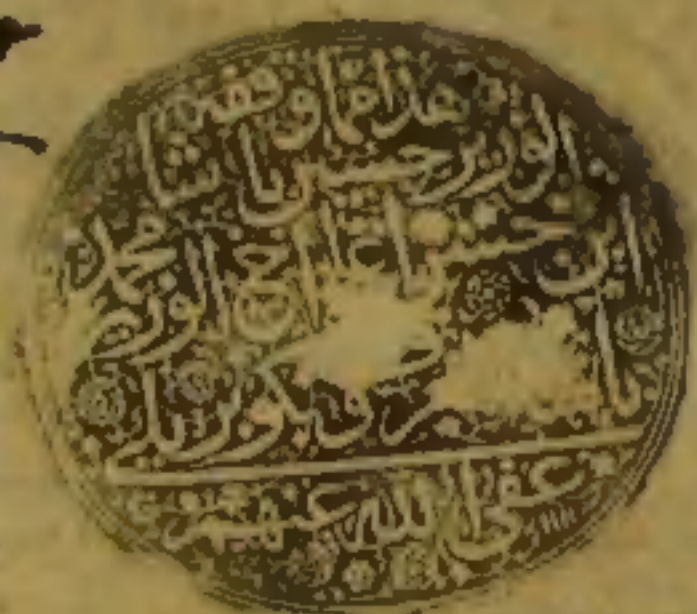 هذا مما وقفه
الوزير حسين باشا
ابن حسن اغا اخي الوزير محمد
باشا بكوبريلي
عفى الله عنهم